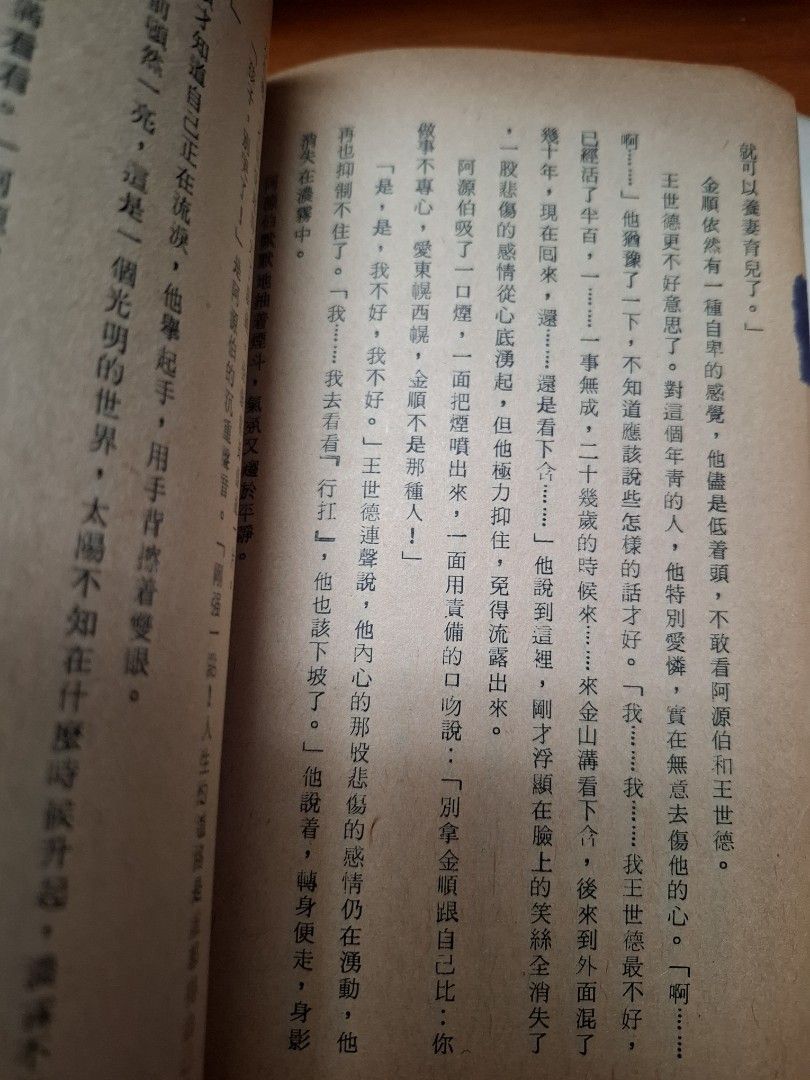 就可以養妻育兒了。」
金順依然有一種自卑的感覺，他儘是低着頭，不敢看阿源伯和王世德。
王世德更不好意思了。對這個年青的人，他特別愛憐，實在無意去傷他的心。「啊………
啊………」他猶豫了一下，不知道應該說些怎樣的話才好。「我………我………我王世德最不好，
已經活了半百，一………一事無成，二十幾歲的時候來………來金山溝看下含，後來到外面混了
幾十年，現在囘來，還………還是看下含………」他說到這裡，剛才浮顯在臉上的笑絲全消失了
，一股悲傷的感情從心底湧起，但他極力抑住，免得流露出來。
阿源伯吸了一口煙，一面把煙噴出來，一面用責備的口吻說：「別拿金順跟自己比：你
做事不專心，愛東幌西幌，金順不是那種人！」
「是，是，我不好，我不好。」王世德連聲說，他內心的那股悲傷的感情仍在湧動，他
再也抑制不住了。「我………我去看看『行扛』，他也該下坡了。」他說着，轉身便走，身影
消失在濃霧中。
阿源伯默默地抽着煙斗，氣氛又趨於平靜。
才知道自己正在流淚，他舉起手，用手背擦着雙眼。
前頓然一亮，這是一個光明的世界，太陽不知在什麼時候升起，